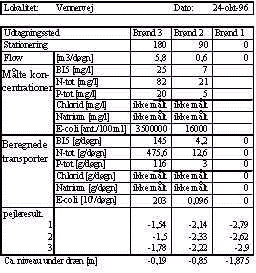 Lokalitet: Vernervej Dato: 24-okt-96
Udtagningssted Brønd 3 Brønd 2 Brønd 1
Stationering 180 90 0
Flow [m3/døgn] 5,8 0,6 0
Målte kon- BI5 [mg/l] 25 7
centrationer N-tot [mg/l] 82 21
P-tot [mg/l] 20 5
Chlorid [mg/l] ikke målt ikke målt
Natrium [mg/l] ikke målt ikke målt
E-coli [ant./100ml] 3500000 16000
Beregnede BI5 [g/døgn] 145 4,2 0
transporter N-tot [g/døgn] 475,6 12,6 0
P-tot [g/døgn] 116 3 0
Chlorid [g/døgn] ikke målt ikke målt 0
Natrium [g/døgn] ikke målt ikke målt 0
E-coli /døgn] 203 0,096 0
pejleresult.
1 -1,54 -2,14 -2,79
2 -1,5 -2,33 -2,62
3 -1,78 -2,22 -2,9
Ca. niveau under dræn [m] -0,19 -0,85 -1,875